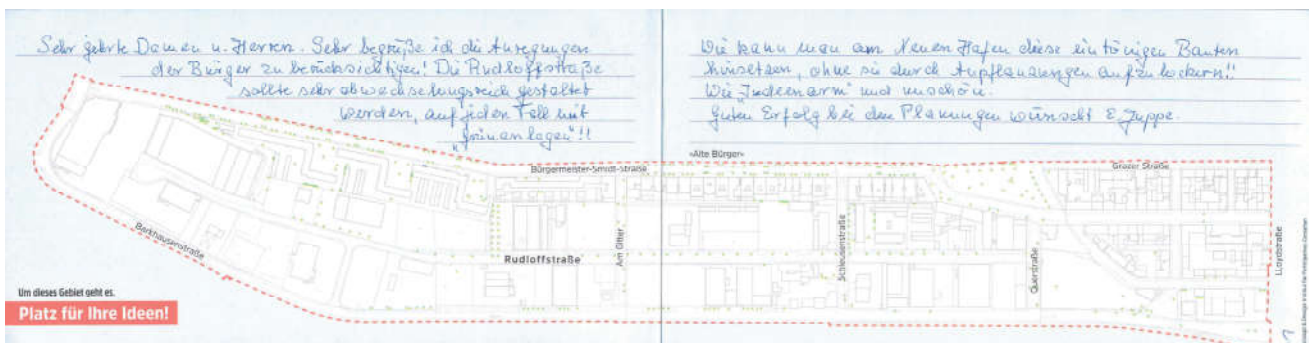 Sehr geehrte Damen u. Herren. Sehr begrüße ich die Anregungen
der Bürger zu berücksichtigen! Die Rudloffstraße
sollte sehr abwechselungsreich gestaltet
werden, auf jeden Fall mit
„Grünanlagen"!!
Wie kann man am Neuen Hafen diese eintönigen Bauten
hinsetzen, ohne sie durch Anpflanzungen aufzulockern!!
Wie „Ideenarm" und unschön.
Guten Erfolg bei den Planungen wünscht E. Juppe.
«Alte Bürger»
Bürgermeister-Smidt-Straße
Grazer Straße
Barkhausenstraße
Rudloffstraße
Am Gitter
Schleusenstraße
Querstraße
LLoydstraße
Um dieses Gebiet geht es.
Platz für Ihre Ideen!